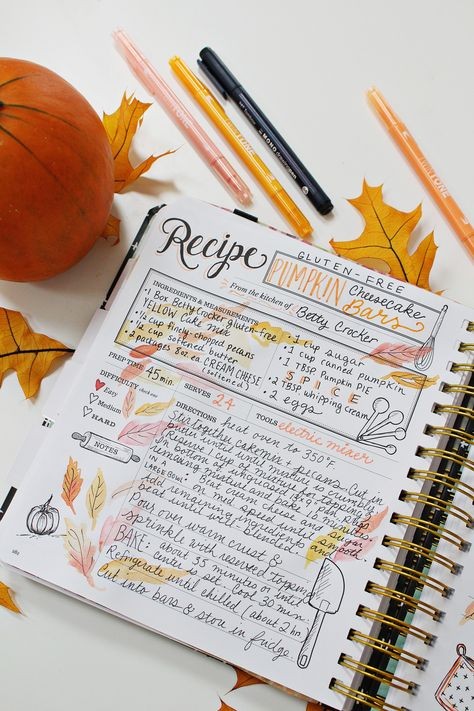 Recipe
GLUTEN-FREE
PUMPKIN Cheesecake
Bars
From the kitchen of Betty Crocker
INGREDIENTS & MEASUREMENTS
• 1 Box Betty Crocker gluten-free
YELLOW Cake mix
• 1/2 cup finely chopped pecans
• 1/2 cup softened butter
• 2 packages 8 oz ea CREAM CHEESE
(softened)
• 1 cup sugar
• 1 cup canned pumpkin
• 1 TBSP Pumpkin PIE
SPICE
• 2 TBSP. whipping cream
• 2 eggs
PREP TIME 45 min.
SERVES 24
TOOLS electric mixer
DIFFICULTY check one
Easy
Medium
HARD
NOTES
DIRECTIONS heat oven to 350°F
Stir together cakemix & pecans. Cut in
butter until mixture is crumbly.
Reserve 1 cup of mixture for topping.
remaining mixture and
LARGE BOWL: Beat cream cheese and sugar
on med speed until smooth.
Add remaining ingredients
beat until well blended.
Pour over warm crust &
sprinkle with reserved topping
BAKE: about 35 minutes or until
center is set. Cool 30 min.
Refrigerate until chilled (about 2 hr)
Cut into bars & stow in fridge